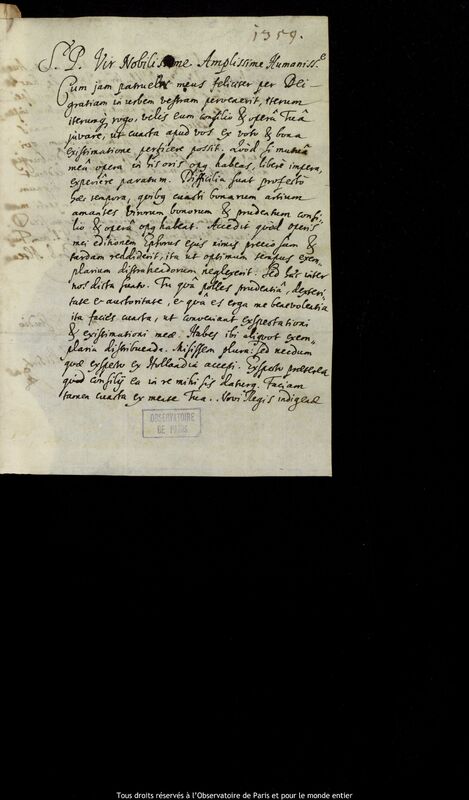 1359.
S. P. Vir Nobilissime Amplissime Humaniss.e
Cum jam patruelis meus feliciter per Dei
gratiam in urbem vestram pervenerit, iterum
iterumq rogo, velis eum consilio & operâ Tuâ
juvare, ut cuncta apud vos ex voto & bona
existimatione perficere possit. Quòd si mutuâ
meâ operâ in his oris opq habeas, liberè impera,
experiêre paratum. Difficilia sunt profecto
hæc tempora, quibq cuncti bonarum artium
amantes virorum bonorum & prudentum consi-
lio & operâ opq habent. Accedit quòd operis
mei editionem typosus ejus nimis preciosam &
tardam reddiderit, ita ut optimum tempus exem-
plarium distrahendorum neglexerit. Sed hæc inter
nos dicta sunto. Tu quâ polles prudentiâ, dexteri-
tate & auctoritate, & quâ es erga me benevolentiâ
ita facies cuncta, ut conveniant exspectationi
& existimationi meæ. Habes ibi aliquot exem-
plaria distribuenda. Misissem plura: sed necdum
quæ exspecto ex Hollandiâ accepi. Exspecto præterea
quid consilij ea in re mihi sis daturq. Faciam
tamen cuncta ex mente Tua. Novi Regis indigenæ
OBSERVATOIRE
DE PARIS
Tous droits réservés à l'Observatoire de Paris et pour le monde entier